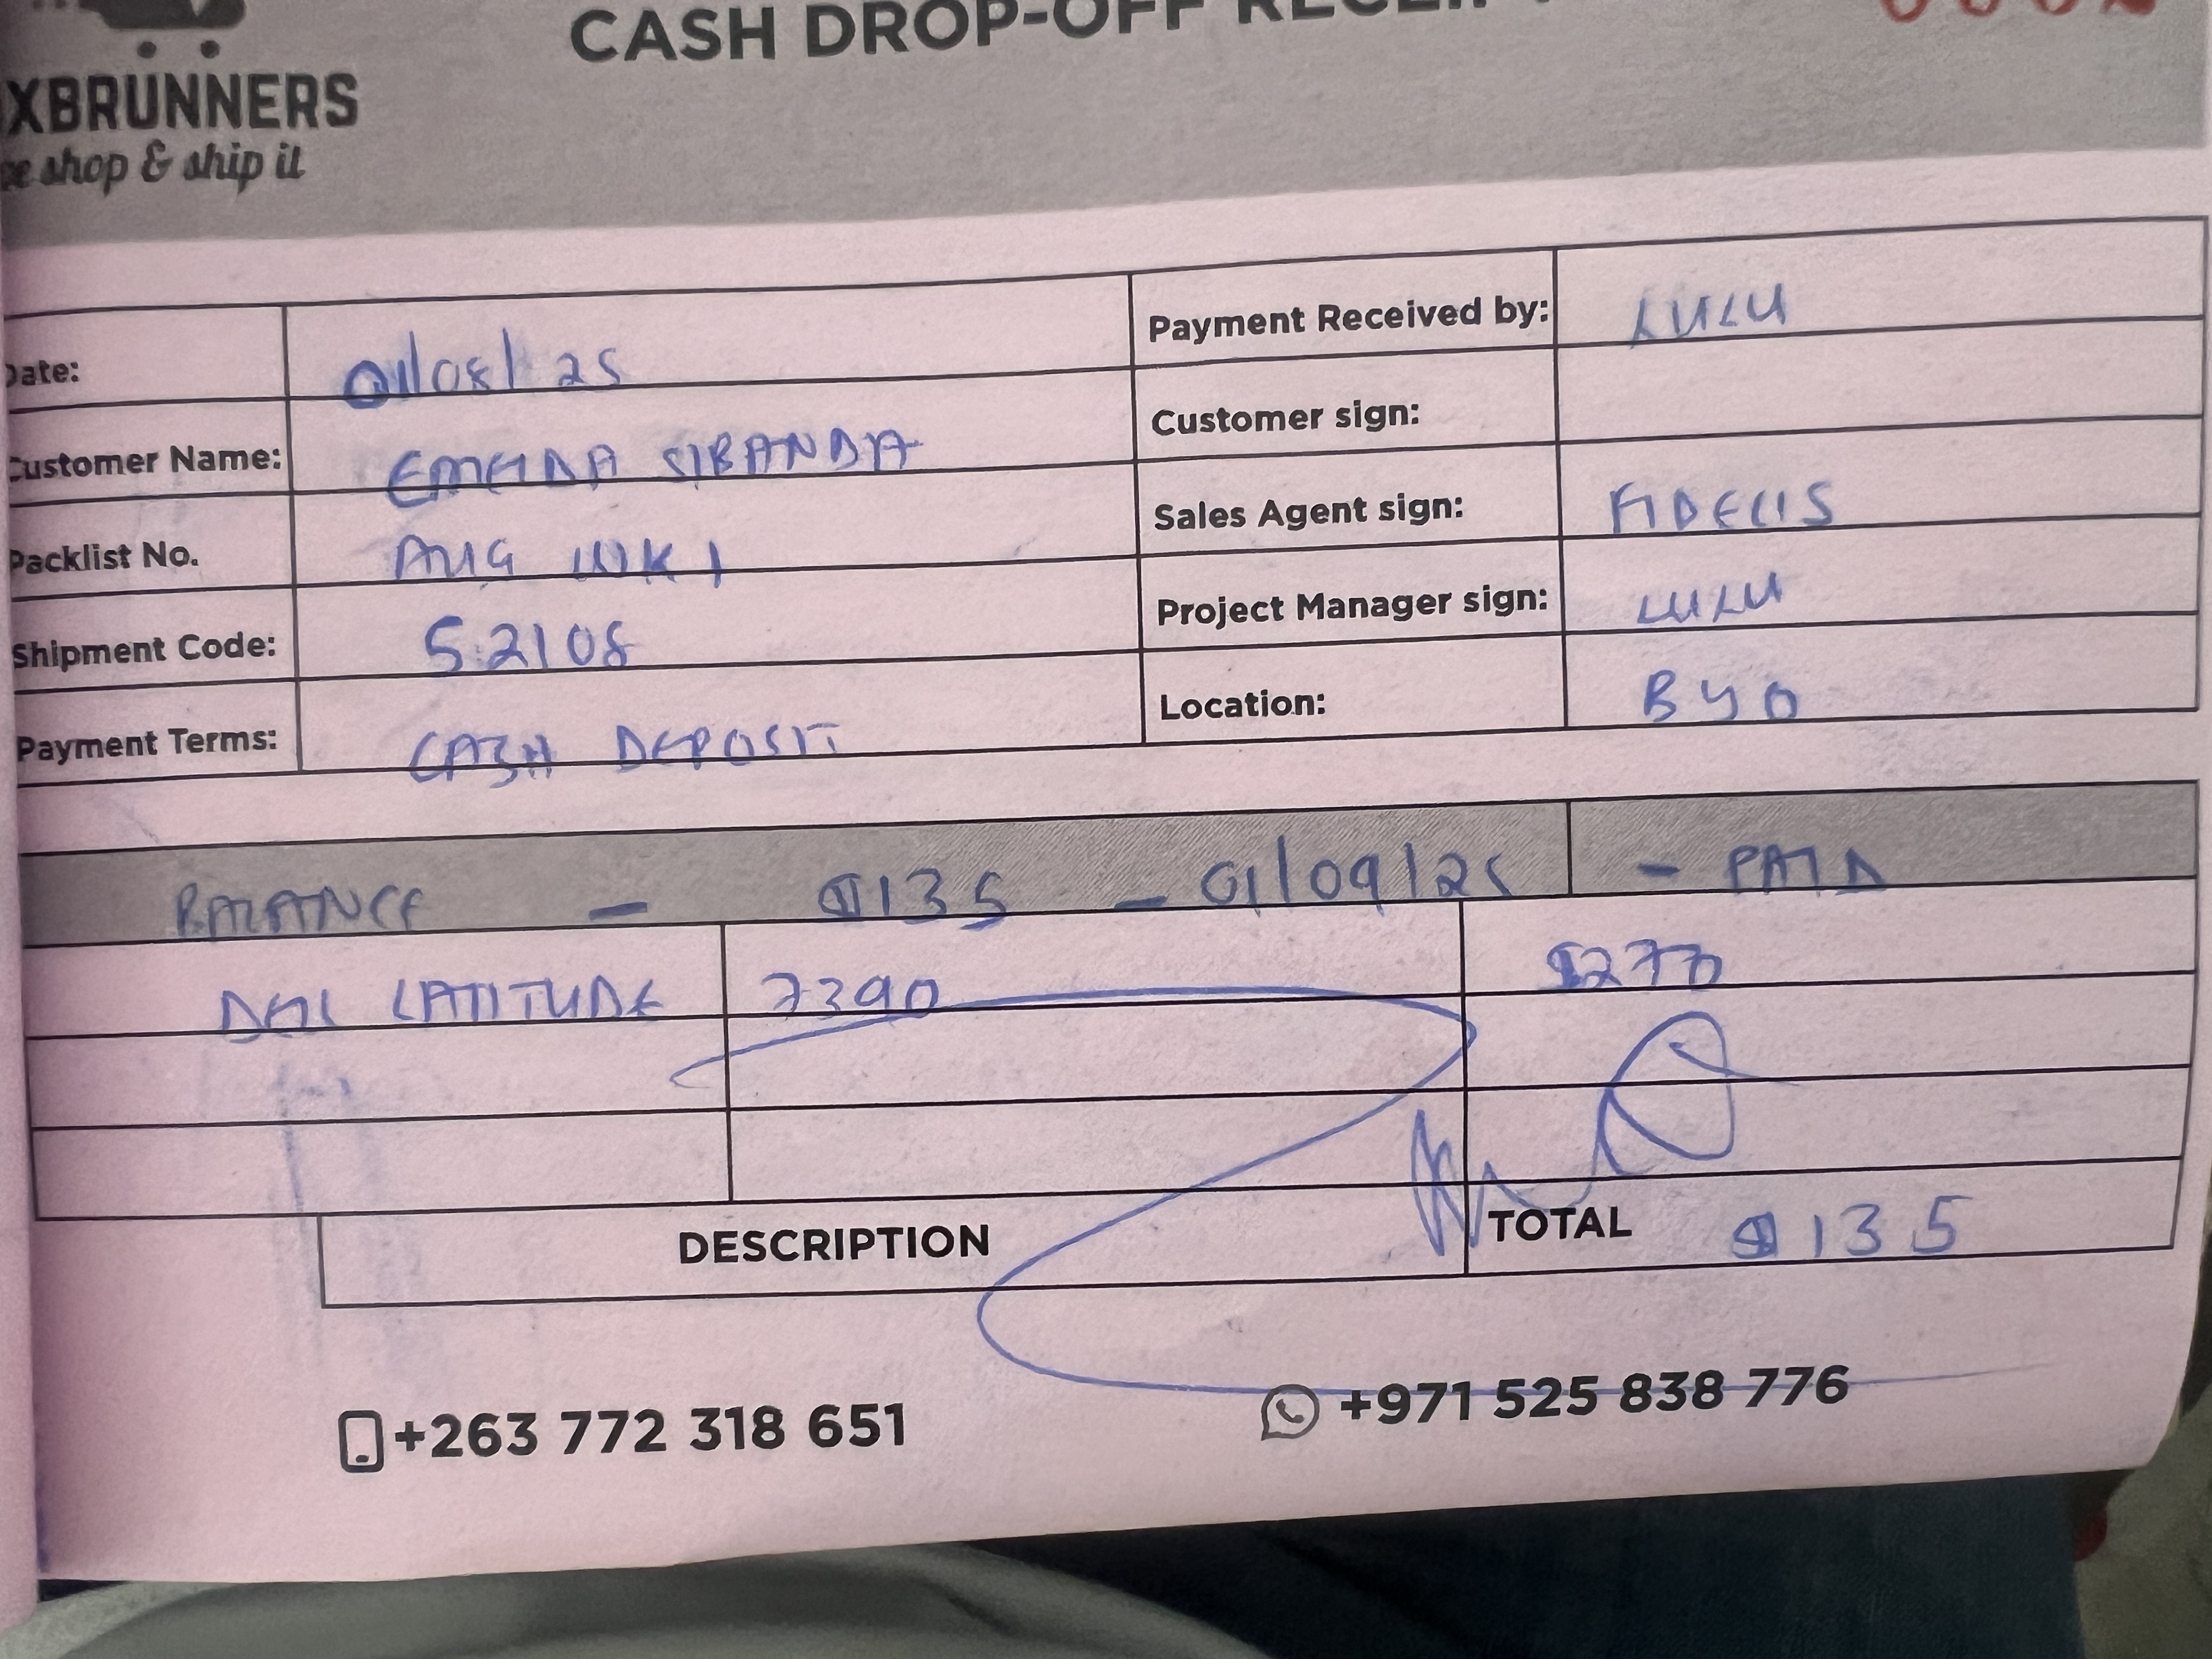 CASH DROP-OFF RECEIPT
XBRUNNERS
shop & ship it
Date: 01/08/25
Customer Name: EMELDA SIBANDA
Packlist No. AUG WK 1
Shipment Code: 52108
Payment Terms: CASH DEPOSIT
Payment Received by: LULU
Customer sign:
Sales Agent sign: FIDELIS
Project Manager sign: LULU
Location: BYO
BALANCE - $135 - 01/09/25 - PAID
DELL LATITUDE 7390 $270
DESCRIPTION TOTAL $135
+263 772 318 651 +971 525 838 776